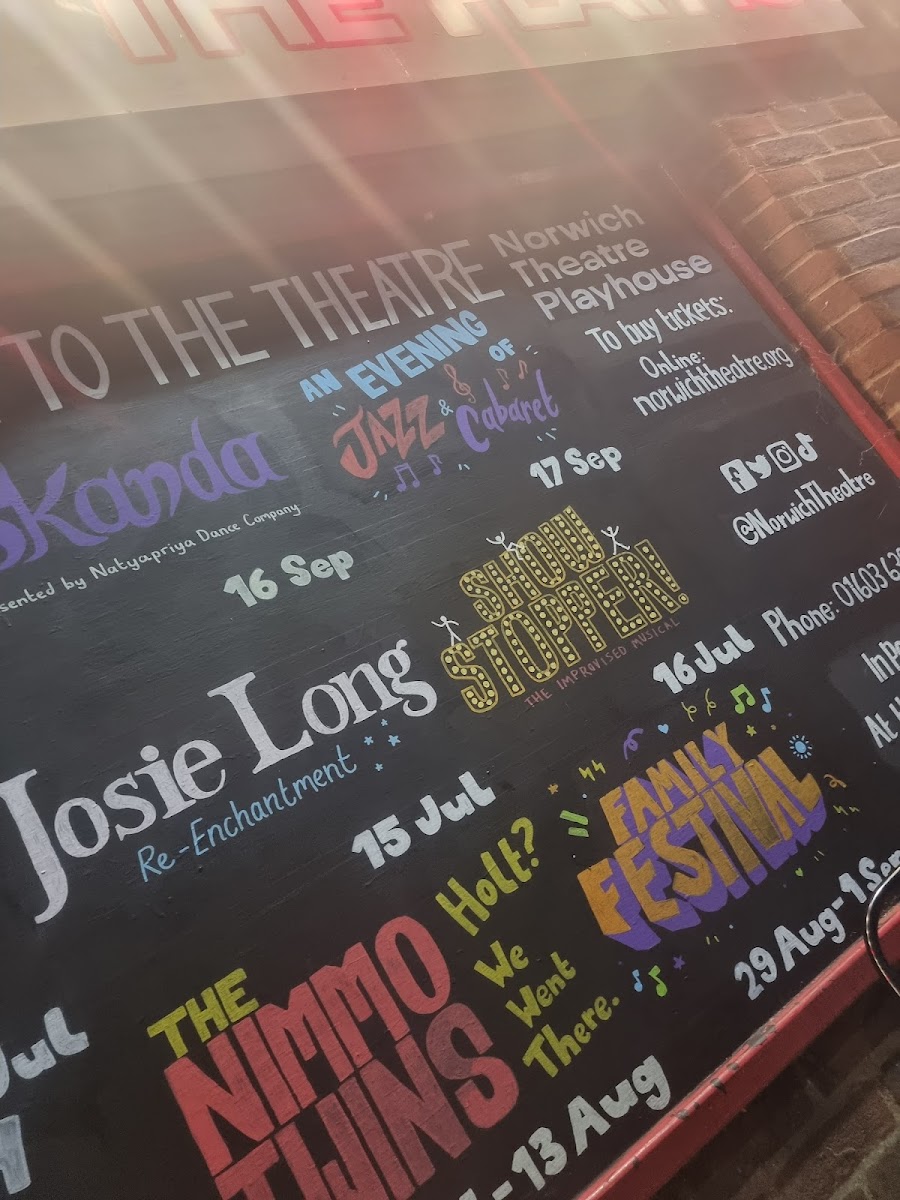 THE
TO THE THEATRE
Norwich
Theatre
Playhouse
To buy tickets:
Online:
norwichtheatre.org
@NorwichTheatre
Phone: 01603 6
At
Skanda
Presented by Natyapriya Dance Company
16 Sep
AN EVENING OF
JAZZ & Cabaret
17 Sep
Josie Long
Re-Enchantment
15 Jul
SHOW
STOPPER!
THE IMPROVISED MUSICAL
16 Jul
THE
NIMMO
TWINS
Holt?
We
Went
There.
- 13 Aug
FAMILY
FESTIVAL
29 Aug-1 Sep
Jul